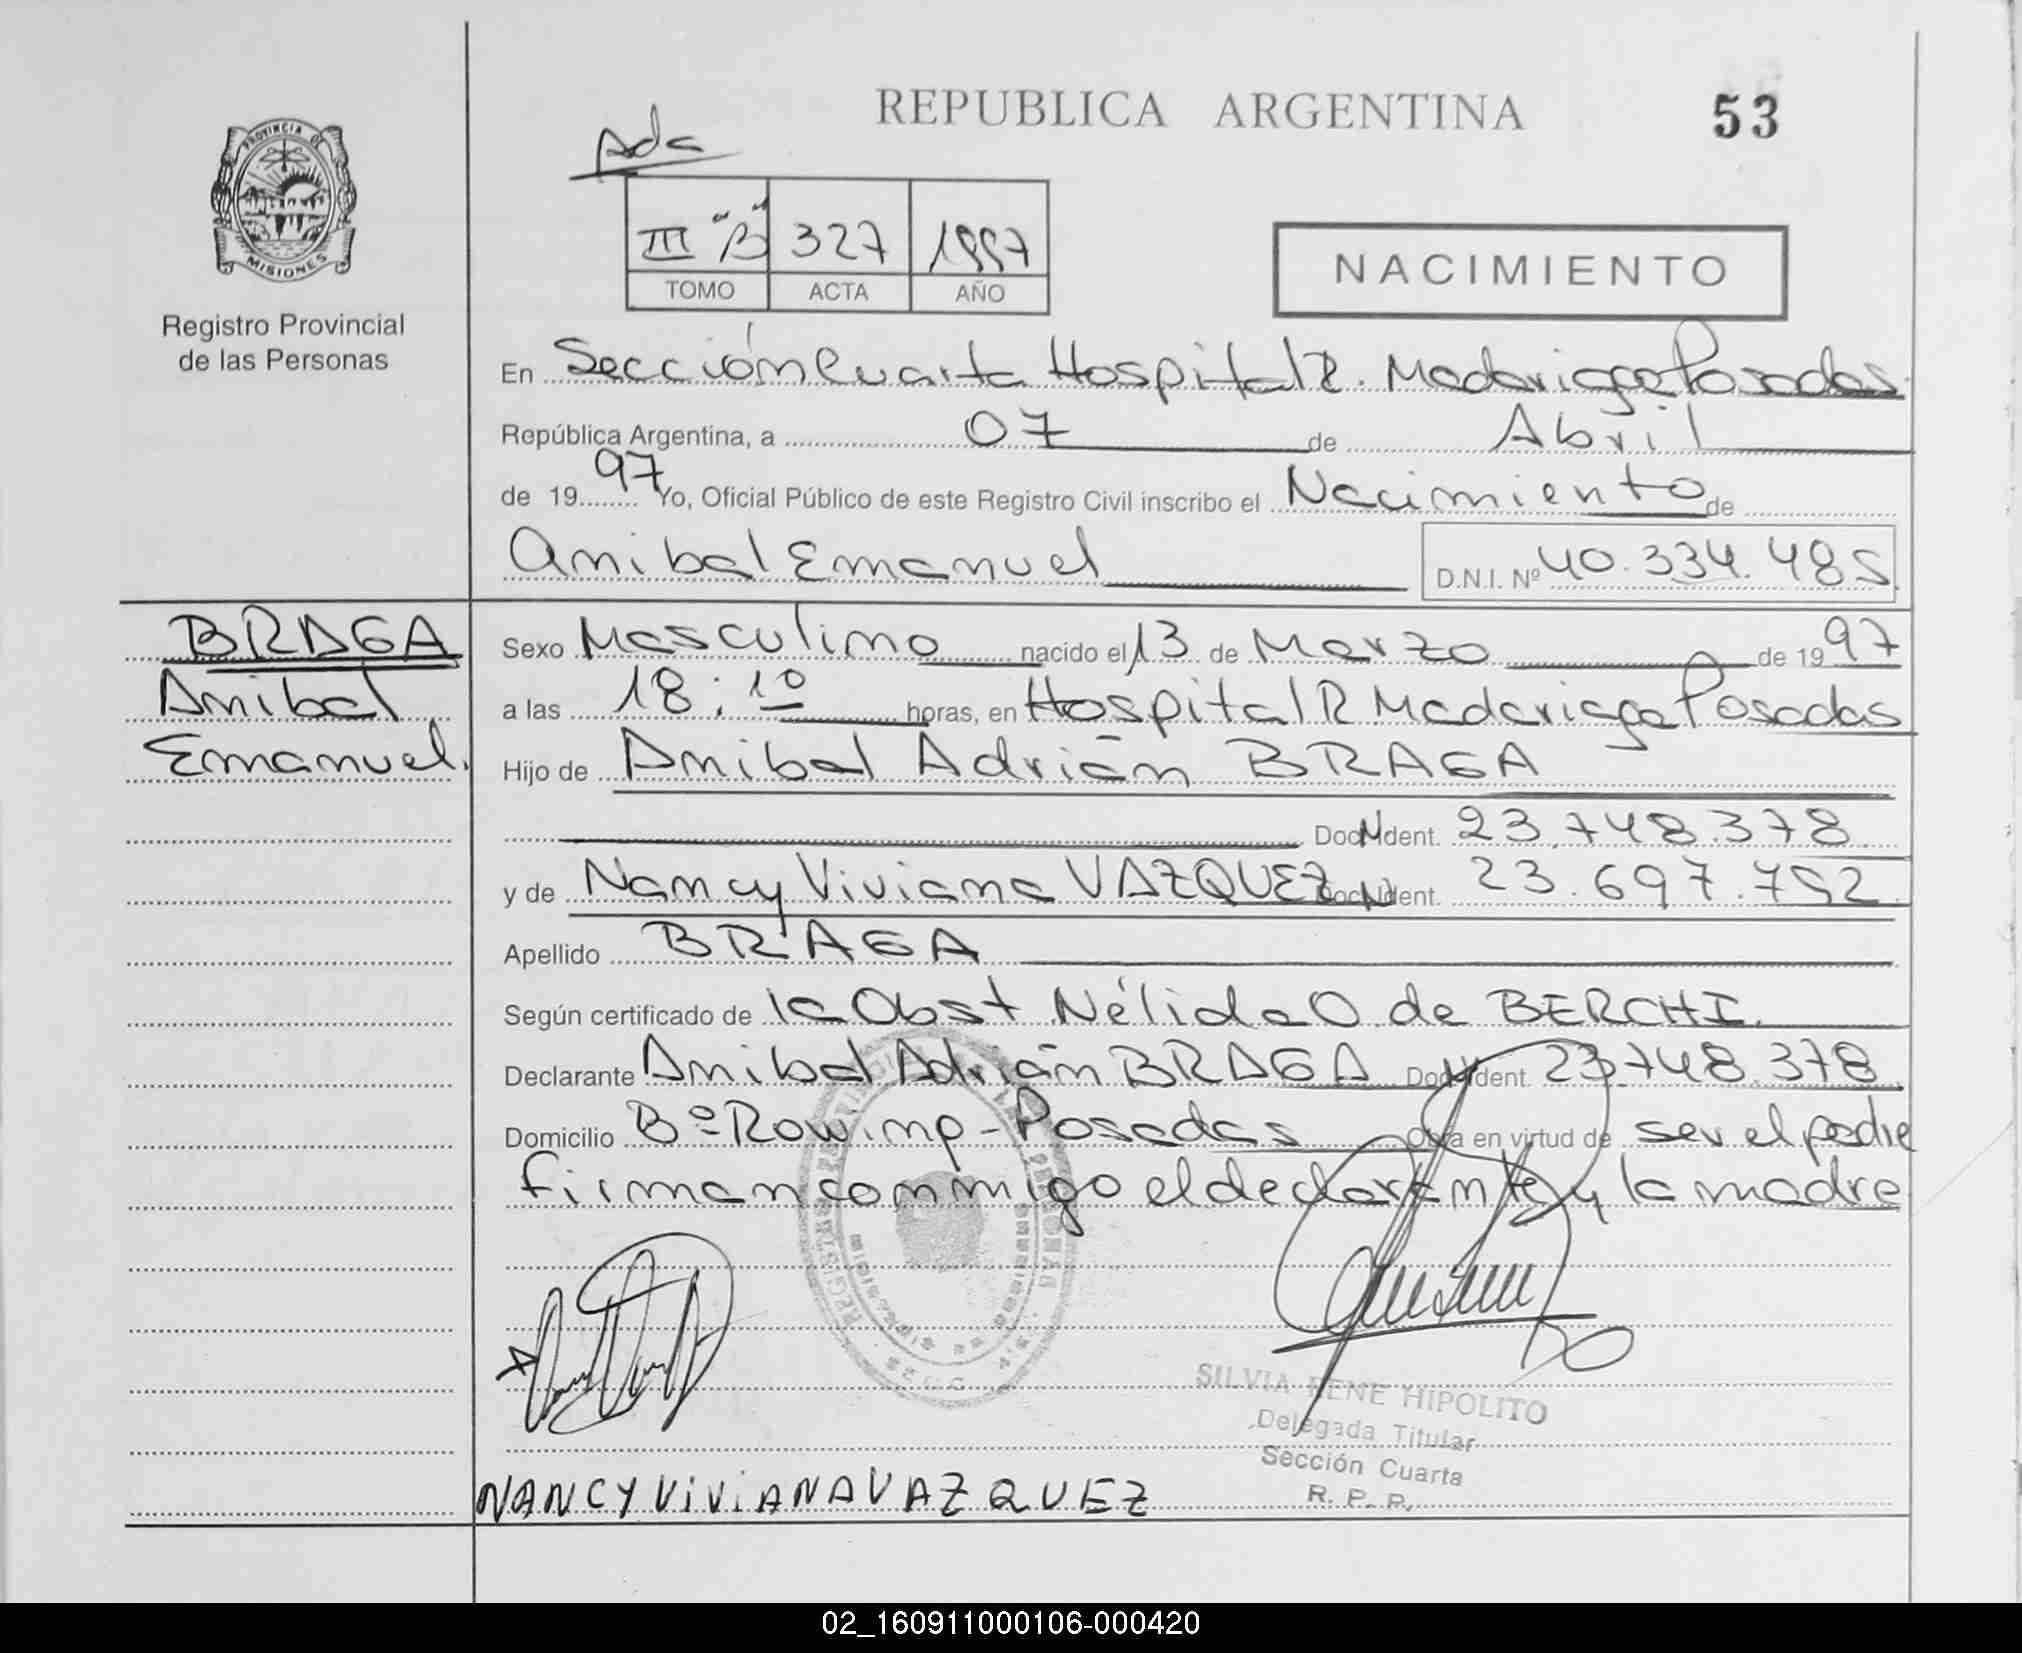 REPUBLICA ARGENTINA
53
Ada
PROVINCIA DE
MISIONES
III "B" 327 1997
TOMO ACTA AÑO
NACIMIENTO
Registro Provincial
de las Personas
En Sección Cuarta Hospital R. Madariaga Posadas
República Argentina, a 07 de Abril
de 1997 Yo, Oficial Público de este Registro Civil inscribo el Nacimiento de
Anibal Emanuel D.N.I. Nº 40.334.485
BRAGA
Anibal
Emanuel.
Sexo Masculino nacido el 13 de Marzo de 1997
a las 18:10 horas, en Hospital R Madariaga Posadas
Hijo de Anibal Adrián BRAGA
Doc. N Ident. 23.748.378
y de Nancy Viviana VAZQUEZ Doc. N Ident. 23.697.752
Apellido BRAGA
Según certificado de la Obst Nélida O. de BERCHI.
Declarante Anibal Adrián BRAGA Doc. Ident. 23748.378
Domicilio Bº Rowing - Posadas Obra en virtud de ser el padre
firman conmigo el declarante y la madre
SILVIA RENE HIPOLITO
Delegada Titular
Sección Cuarta
R. P. P.
NANCY ViViANA VAZQUEZ
02_160911000106-000420